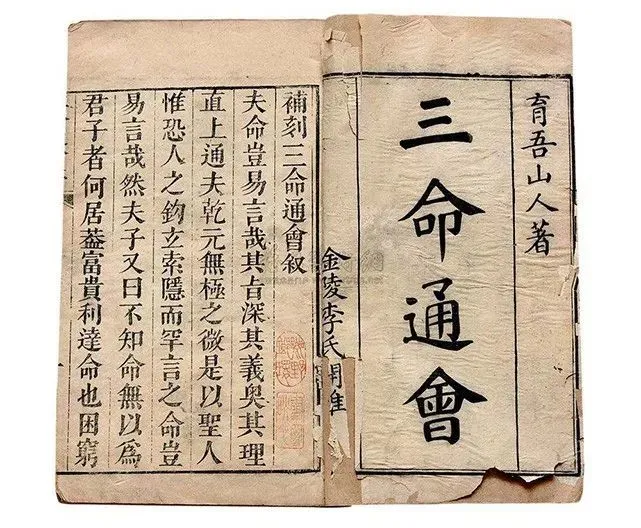 育吾山人著
三命通會
金陵李氏
補刻三命通會叙
夫命豈易言哉其旨深其義奧其理
直上通夫乾元無極之微是以聖人
惟恐人之鈎立索隱而罕言之命豈
易言哉然夫子又曰不知命無以為
君子者何居葢富貴利達命也困窮